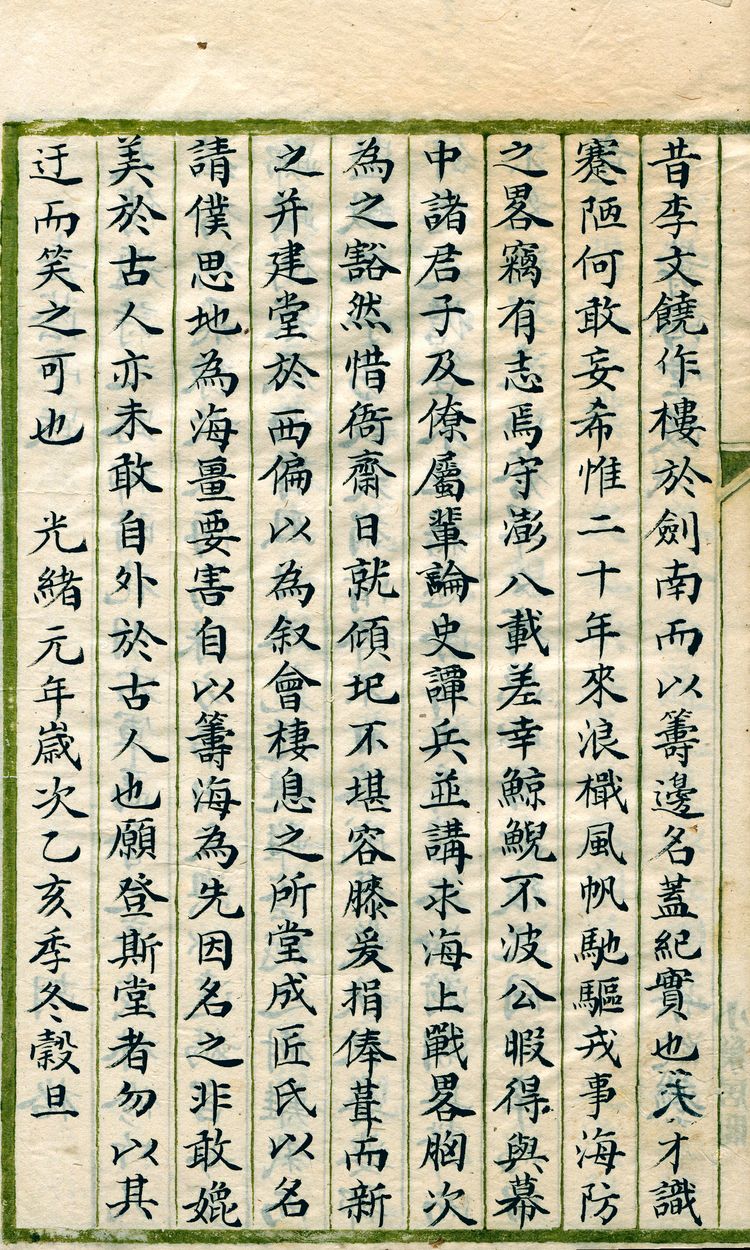 昔李文饒作樓於劍南而以籌邊名蓋紀實也才識
蹇陋何敢妄希惟二十年來浪檝風帆馳驅戎事海防
之畧竊有志焉守澎八載差幸鯨鯢不波公暇得與幕
中諸君子及僚屬輩論史譚兵並講求海上戰畧胸次
為之豁然惜衙齋日就傾圮不堪容膝爰捐俸葺而新
之并建堂於西偏以為叙會棲息之所堂成匠氏以名
請僕思地為海畺要害自以籌海為先因名之非敢媲
美於古人亦未敢自外於古人也願登斯堂者勿以其
迂而笑之可也　光緒元年歲次乙亥季冬穀旦